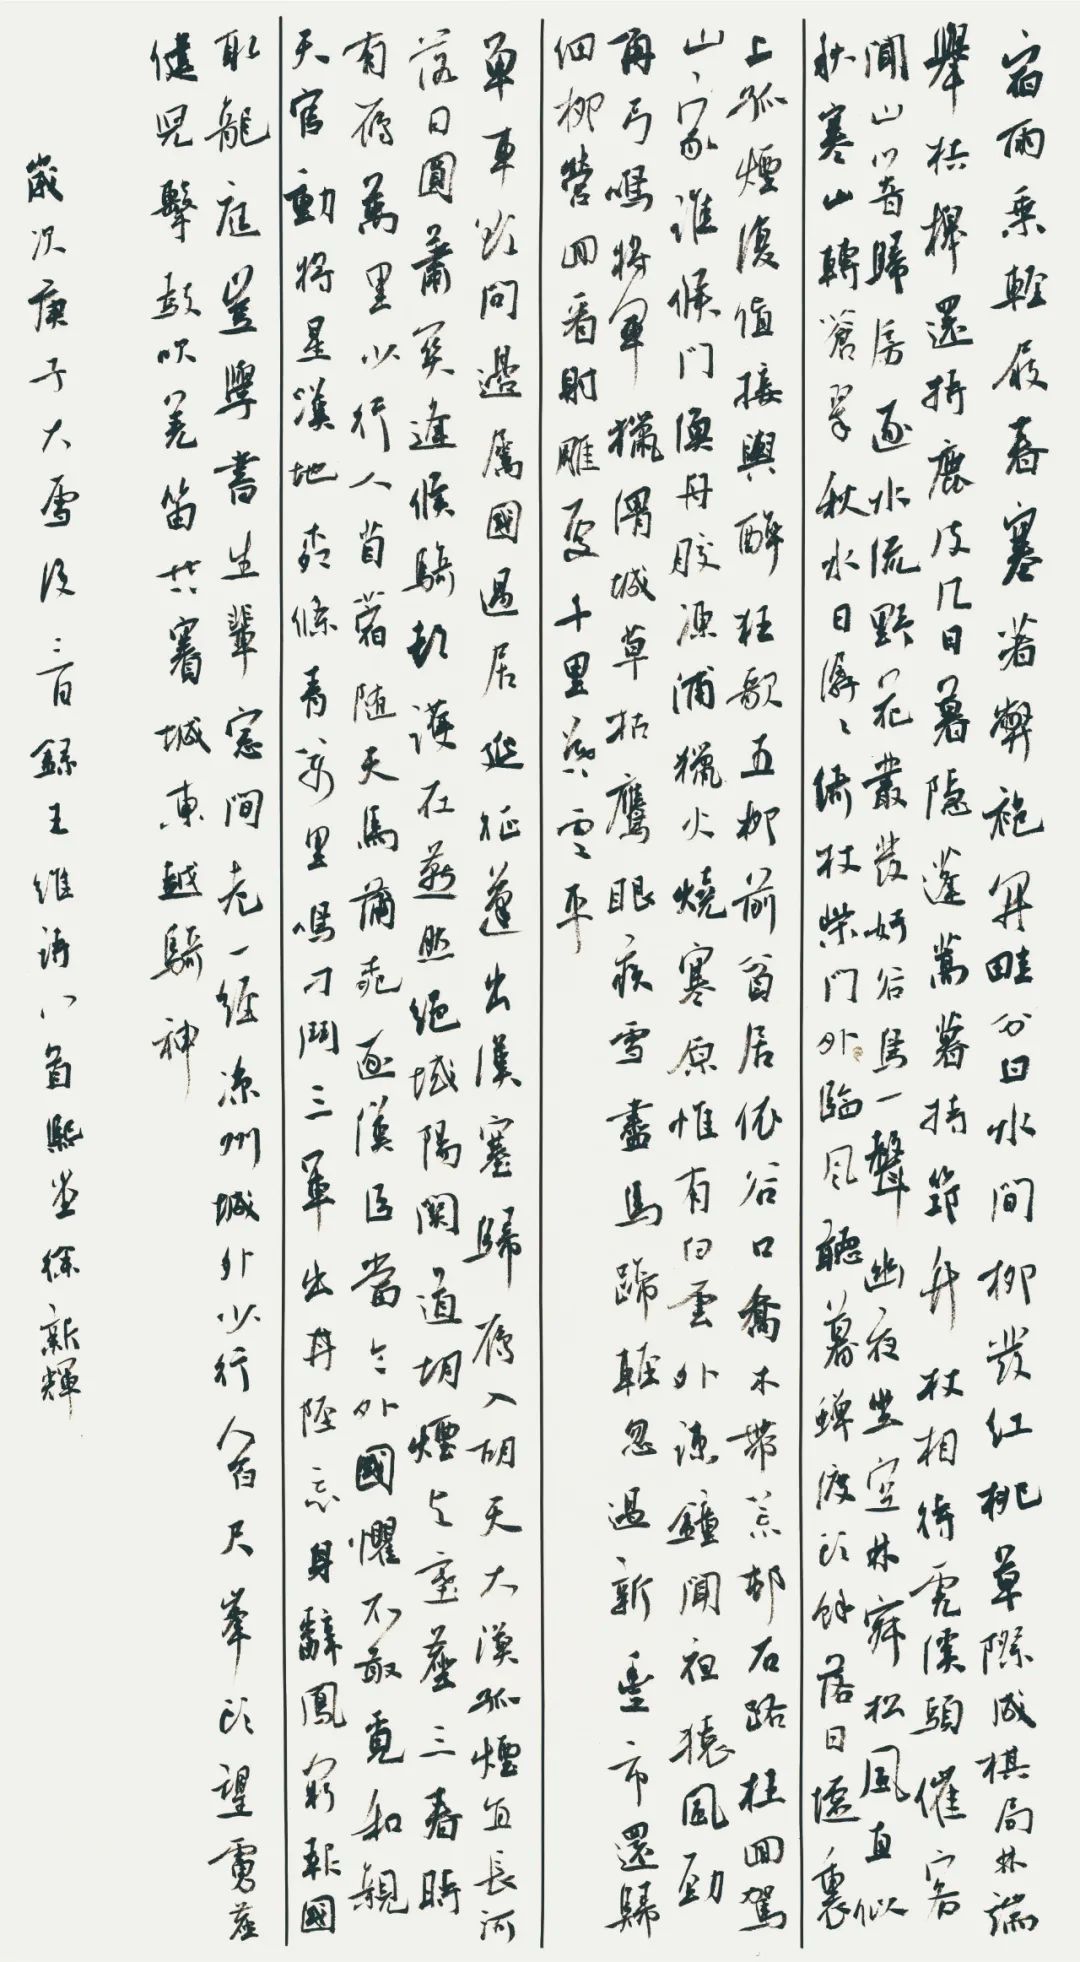 宿雨乘輕屐春寒著弊袍開畦分白水間柳發紅桃草際成棋局林端
舉桔槔還持鹿皮几日暮隱蓬蒿暮持筇竹杖相待虎溪頭催客
聞山響歸房逐水流野花叢發好谷鳥一聲幽夜坐空林寂松風直似
秋寒山轉蒼翠秋水日潺〻倚杖柴門外臨風聽暮蟬渡頭餘落日墟裏
上孤煙復值接輿醉狂歌五柳前貧居依谷口喬木帶荒村石路枉回駕
山家誰候門漁舟膠凍浦獵火燒寒原惟有白雲外疎鐘聞夜猿風勁
角弓鳴將軍獵渭城草枯鷹眼疾雪盡馬蹄輕忽過新豐市還歸
細柳營回看射雕處千里暮雲平
單車欲問邊屬國過居延征蓬出漢塞歸雁入胡天大漠孤煙直長河
落日圓蕭關逢候騎都護在燕然絕域陽關道胡煙与塞塵三春時
有雁萬里少行人苜蓿隨天馬蒲萄逐漢臣當令外國懼不敢覓和親
天官動將星漢地柳條青萬里鳴刁鬥三軍出井陘忘身辭鳳闕報國
取龍庭豈學書生輩窓間老一經涼州城外少行人百尺峯頭望虜塵
健兒擊鼓吹羌笛共賽城東越騎神
歲次庚子大雪後三日錄王維詩八首熙堂徐新輝